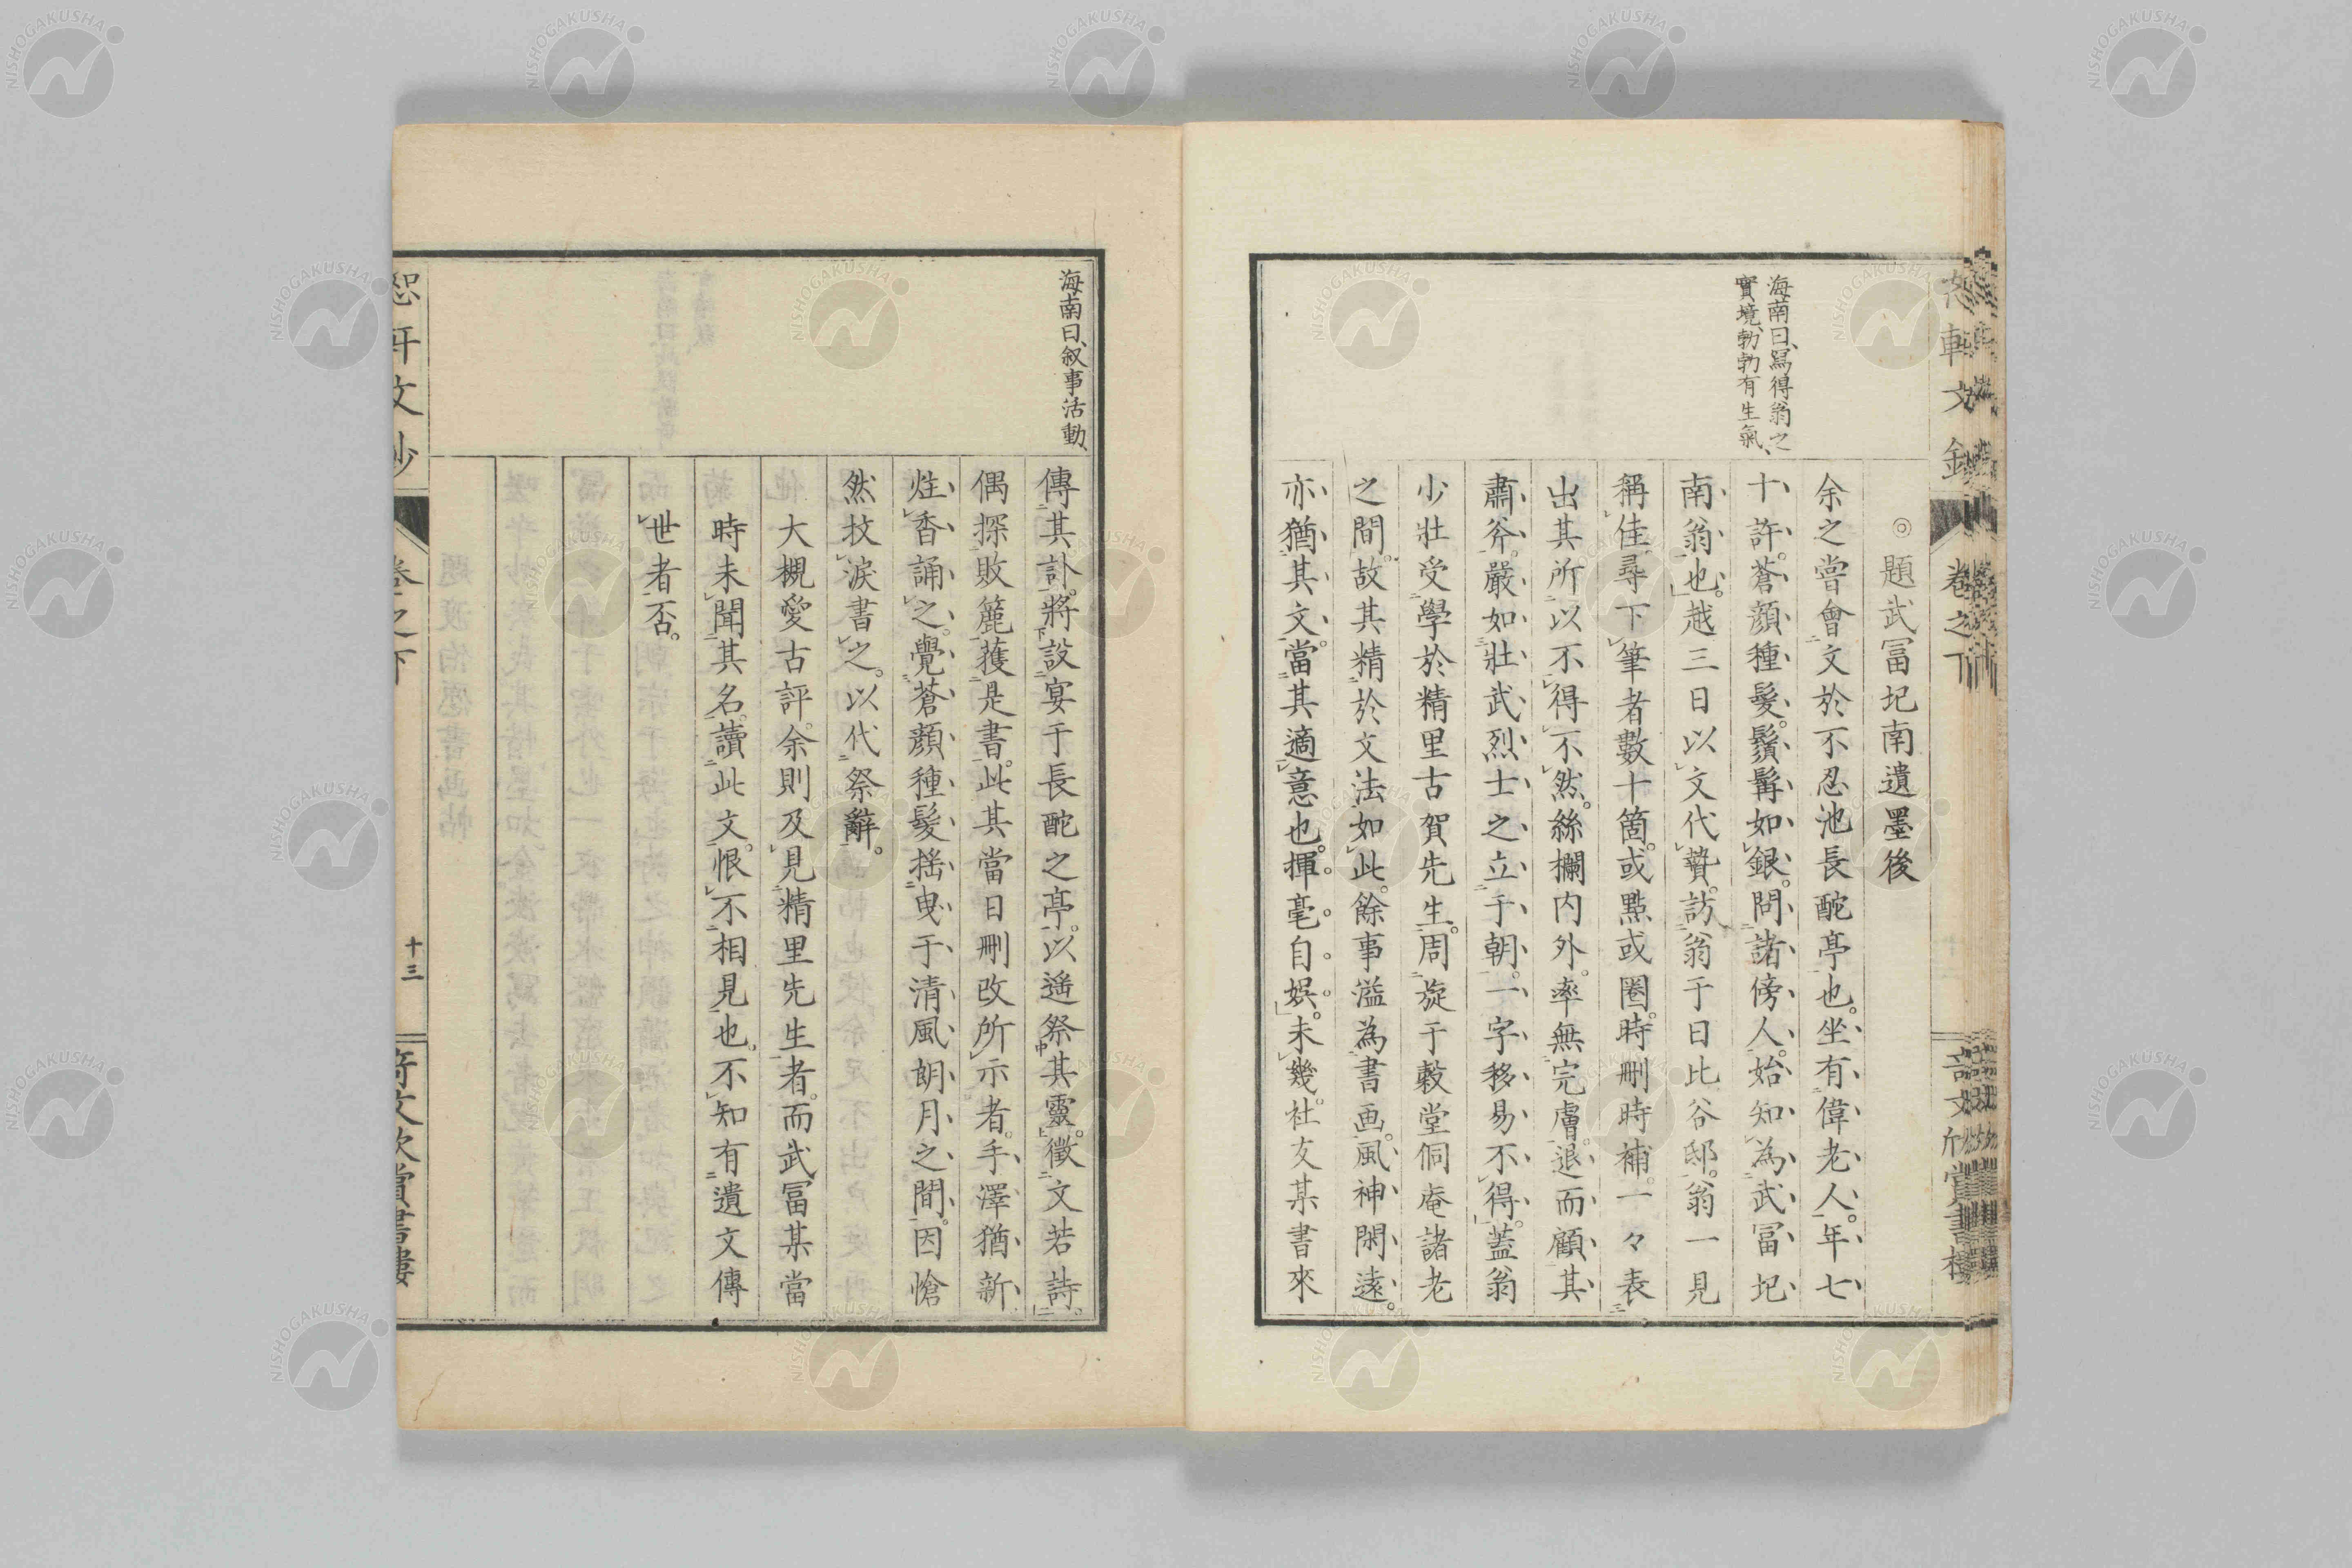 恕軒文鈔
卷之下
奇文欣賞書樓
◎題武冨圯南遺墨後
海南曰、寫得翁之
實境、勃勃有生氣、
余之嘗會文於不忍池長酡亭也。坐有偉老人。年七
十許。蒼顔種髮。鬚髯如銀。問諸傍人。始知為武冨圯
南翁也。越三日以文代贄。訪翁于日比谷邸。翁一見
稱佳。尋下筆者數十箇。或點或圈。時刪時補。一々表
出其所以不得不然。絲欄内外。率無完膚。退而顧其
肅斧。嚴如壯武烈士之立于朝。一字移易不得。蓋翁
少壯受學於精里古賀先生。周旋于穀堂侗庵諸老
之間。故其精於文法如此。餘事溢為書画。風神閑遠。
亦猶其文。當其適意也。揮毫自娯。未幾。社友某書來
海南曰、叙事活動、
傳其訃。將設宴于長酡之亭。以遙祭其靈。徵文若詩。
偶探敗簏獲是書。此其當日刪改所示者。手澤猶新。
炷香誦之。覺蒼顔種髮搖曳于清風朗月之間。因愴
然抆淚書之。以代祭辭。
大槻愛古評。余則及見精里先生者。而武冨某當
時未聞其名。讀此文。恨不相見也。不知有遺文傳
世者否。
恕軒文鈔
卷之下
十三
奇文欣賞書樓